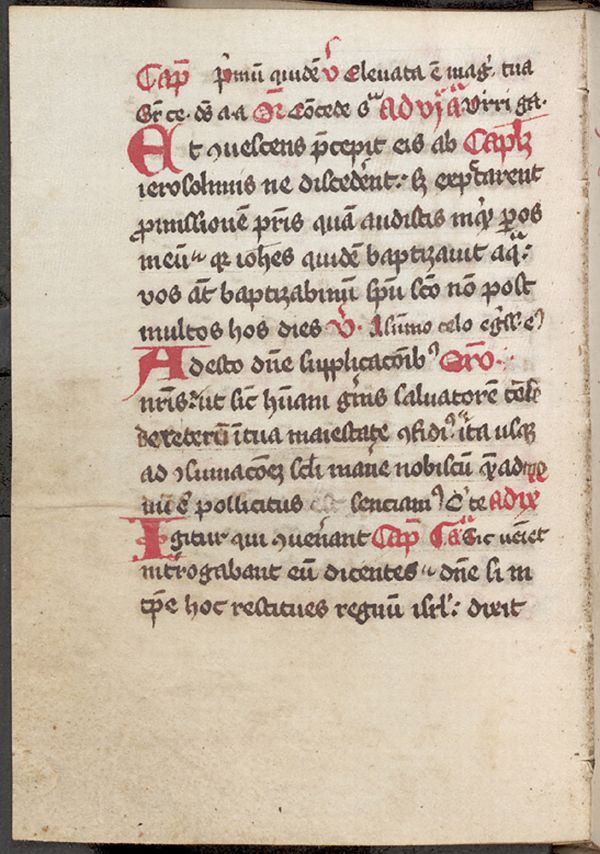 Cap̄ p̄mū quidē v̄ Eleuata ē mag̃ tua
Gr̃ce. ds̄ a.a Or̄ Cōcede sª ad vjª ã Viri ga.
Et ꝯuescens p̄cepit eis ab Capl̄z
ierosolimis ne discedēnt: sꝫ exp̄ctarent
ꝓmissionē pr̄is quā audistis inq̇ꝫ ꝑ os
meū qꝛ ioh̄es quidē baptizauit aq̄ª:
vos āt baptizabimī sp̄u sc̄o nō post
multos hos dies v̄. Asūmo celo
Adesto dn̄e supplicac̄onibꝰ Orō.
nr̄is: ut sic hūani gn̄is saluatorē
tua maiestate ꝯfidimꝰ ita usqꝫ
ad ꝯsūmac̄oeꝫ sc̄li manē nobiscū
pollicitus senciamꝰ ad ix
Igitur qui ꝯuen̄ant Cap̄ ã Sic ueīet
int̄rogabant eū dicentes dn̄e si in
tp̄e hoc restitues regnū isrl̄: dixit